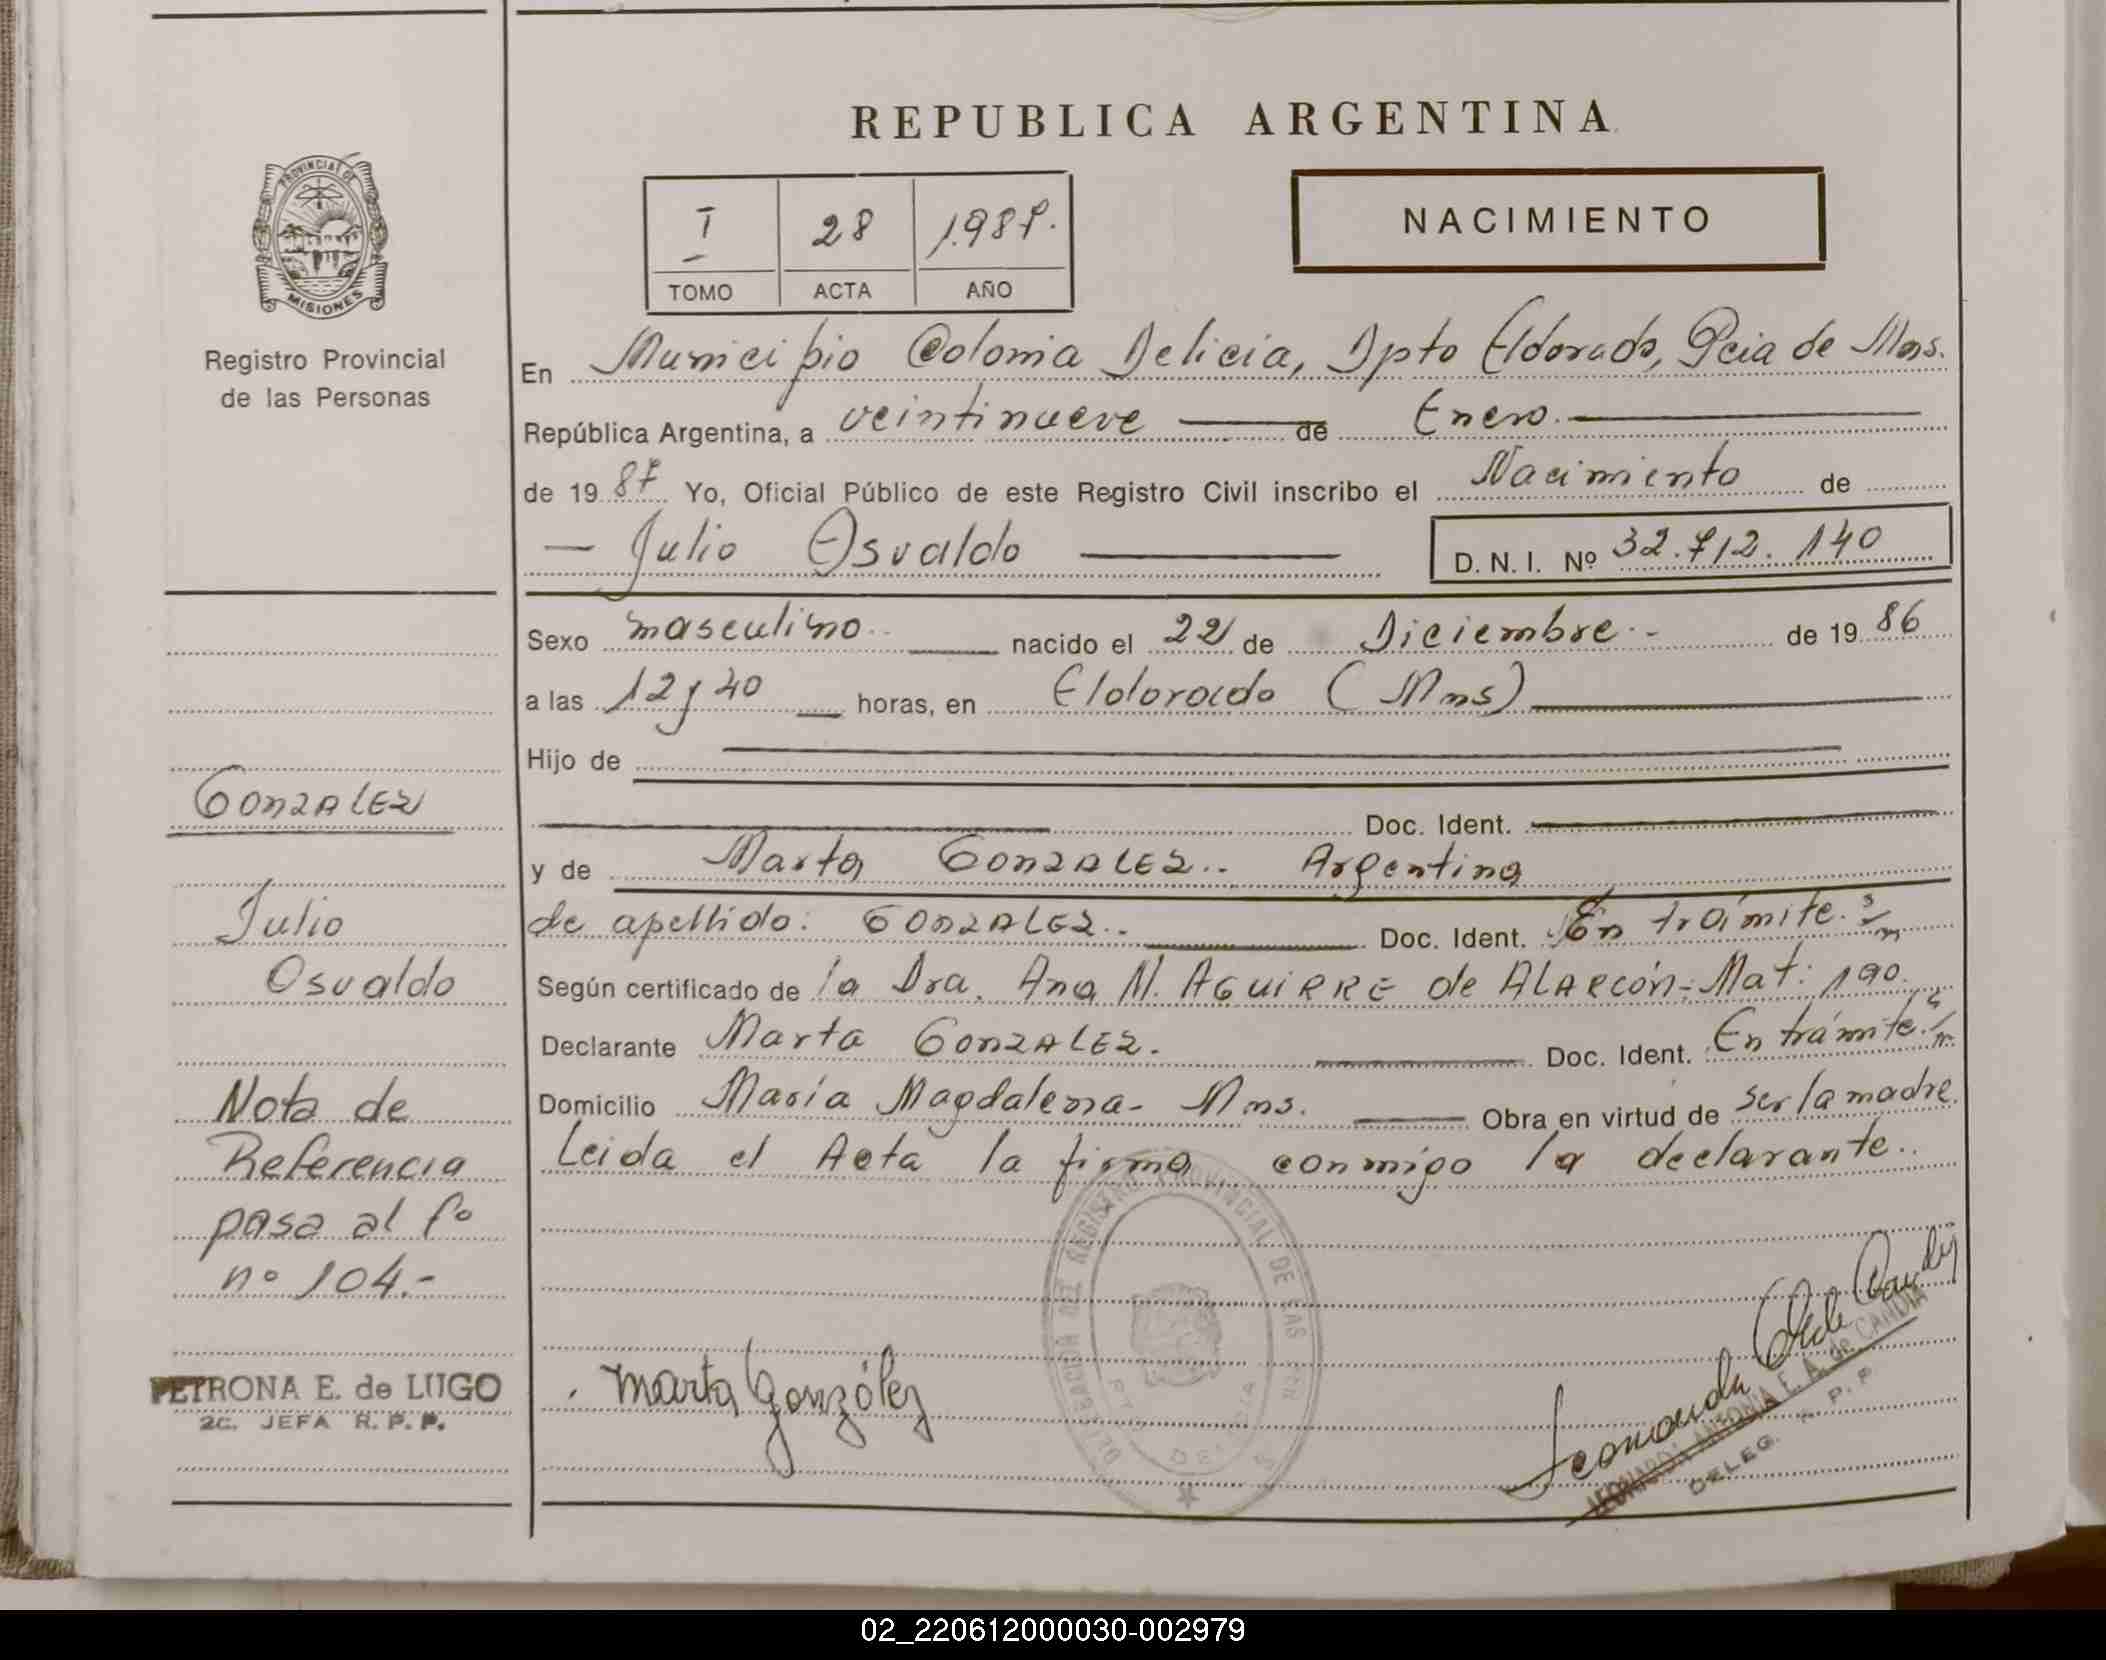 REPUBLICA ARGENTINA
PROVINCIA DE
MISIONES
Registro Provincial
de las Personas
I 28 1.987.
TOMO ACTA AÑO
NACIMIENTO
En Municipio Colonia Delicia, Dpto Eldorado, Pcia de Mns.
República Argentina, a veintinueve de Enero.
de 19 87 Yo, Oficial Público de este Registro Civil inscribo el Nacimiento de
Julio Osvaldo
D. N. I. Nº 32.712.140
Sexo masculino. nacido el 22 de Diciembre.- de 19 86
a las 12 y 40 horas, en Eldorado (Mns)
Hijo de
Doc. Ident.
y de Marta GONZALEZ.. Argentina
de apellido: GONZALEZ.. Doc. Ident. En trámite. s/m
Según certificado de la Dra. Ana M. AGUIRRE de ALARCÓN; Mat: 190.
Declarante Marta GONZALEZ. Doc. Ident. En trámite.
Domicilio María Magdalena- Mns. Obra en virtud de ser la madre.
Leida el Acta la firma conmigo la declarante..
GONZALEZ
Julio
Osvaldo
Nota de
Referencia
pasa al fº
nº 104.-
PETRONA E. de LUGO
2C. JEFA R. P. P.
Marta González
DELEGACION DEL REGISTRO PROVINCIAL DE LAS PER
DELICIA
ANTONIA E. A. de CANDIA
DELEG. R. P. P.
02_220612000030-002979